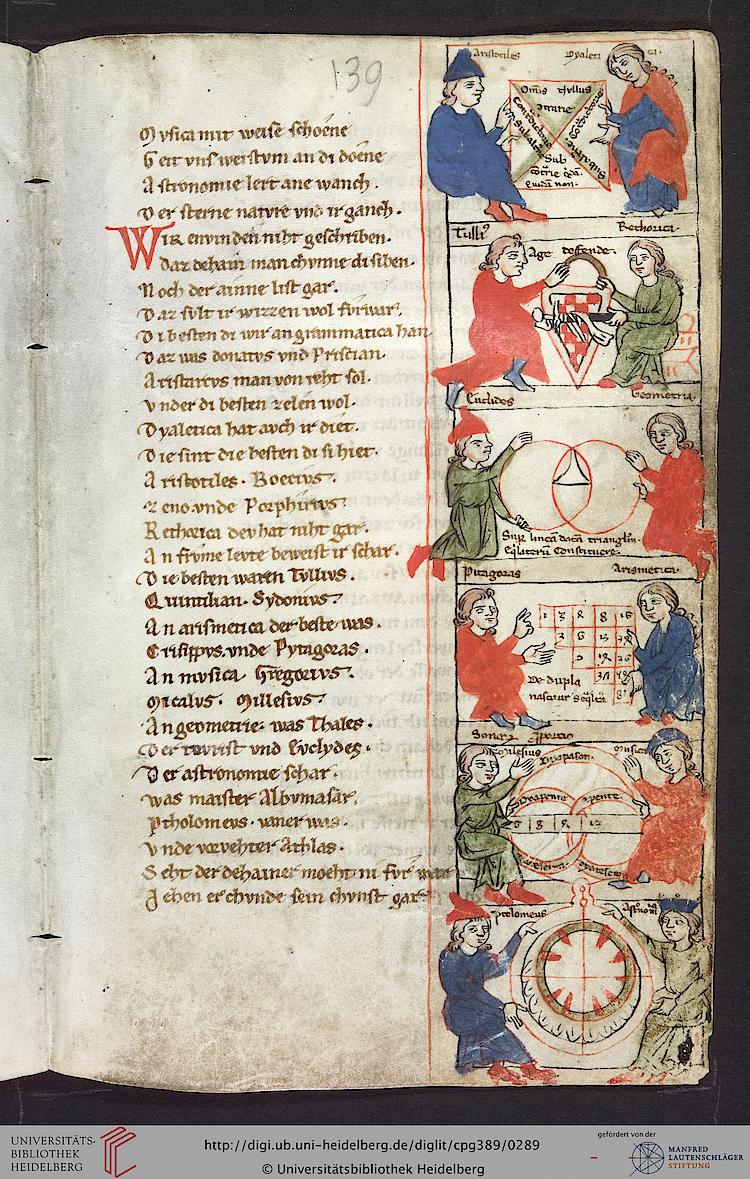 139
Musica mit weise schoene
Geit uns weistum an di doene
Astronomie lert ane wanch.
Der sterne nature und ir ganch.
WIR envinden niht geschriben.
Daz dehain man chunne di siben.
Noch der ainne list gar.
Daz sult ir wizzen wol furwar.
Di besten di wir an grammatica han
Daz was donatus und Priscian
Aristarcus man von reht sol
Under di besten zelen wol.
Dyaletica hat auch ir diet.
Die sint die besten di si hiet.
Aristotiles. Boecius.
Zeno unde Porphirius
Rethorica deu hat niht gar.
An frume leute beweist ir schar.
Die besten waren Tullius.
Quintilian. Sydonius
An arismetica der beste was.
Crisippus unde Pytagoras.
An musica Gregorius
Micalus. Millesius
An geometrie was Thales.
und Euclydes.
Der astronomie schar.
was maister Albumasar.
Ptholomeus. waner was.
Unde Athlas.
Seht der dehainer moeht ni fur war
Jehen er chunde sein chunst gar
Aristotiles Dyaleti ca.
Omnis nullus
Sub
quidam non.
Tulli9 Rethorica
Age deffende.
Euclides Geometria.
Sup lineā datā trianglm
Eqliterū Constituere.
Pitagoras Arismetica
De dupla
nascitur seqltra
Milesius Musica
Dyapason.
Dyapente pente.
6 8 9 12
Ptolomeus Astronomia
UNIVERSITÄTS-
BIBLIOTHEK
HEIDELBERG
http://digi.ub.uni-heidelberg.de/diglit/cpg389/0289
© Universitätsbibliothek Heidelberg
gefördert von der
MANFRED
LAUTENSCHLÄGER
STIFTUNG